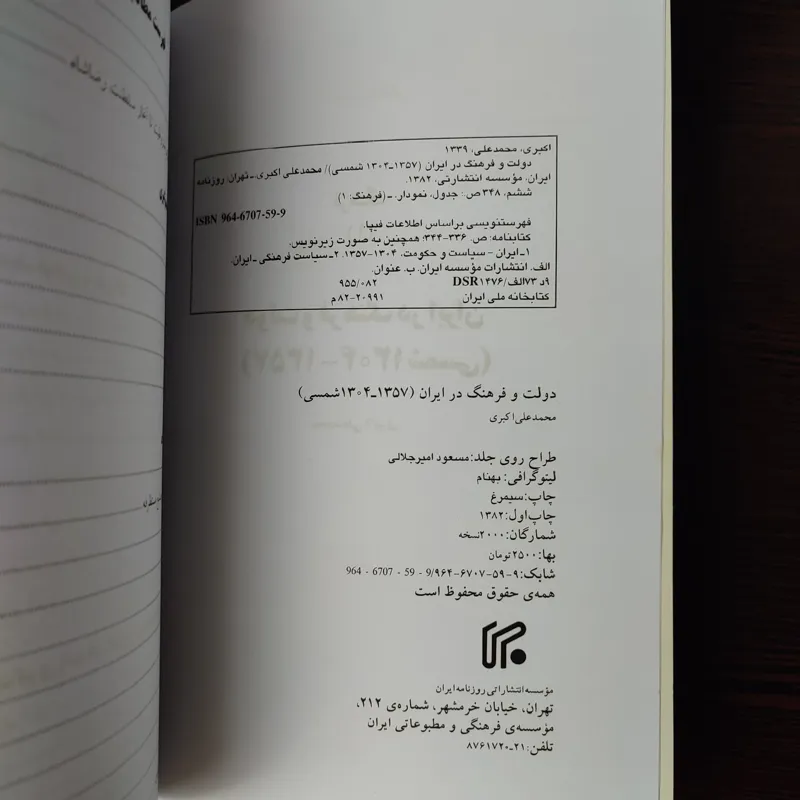 اکبری، محمدعلی، ۱۳۳۹
دولت و فرهنگ در ایران (۱۳۵۷ـ۱۳۰۴ شمسی)/ محمدعلی اکبری. ـ تهران: روزنامه
ایران، مؤسسه انتشاراتی، ۱۳۸۲.
ششم، ۳۴۸ ص.: جدول، نمودار. ـ (فرهنگ: ۱)
ISBN 964-6707-59-9
فهرستنویسی براساس اطلاعات فیپا.
کتابنامه: ص. ۳۳۶-۳۴۴؛ همچنین به صورت زیرنویس.
۱ـ ایران - سیاست و حکومت، ۱۳۰۴-۱۳۵۷. ۲ـ سیاست فرهنگی ـ ایران.
الف. انتشارات مؤسسه ایران. ب. عنوان.
۹د ۷۳الف/ DSR۱۴۷۶ ۹۵۵/۰۸۲
کتابخانه ملی ایران ۲۰۹۹۱-۸۲م
دولت و فرهنگ در ایران (۱۳۵۷ـ۱۳۰۴شمسی)
محمدعلی اکبری
طراح روی جلد: مسعود امیرجلالی
لیتوگرافی: بهنام
چاپ: سیمرغ
چاپ اول: ۱۳۸۲
شمارگان: ۲۰۰۰نسخه
بها: ۲۵۰۰تومان
شابک: ۹-۵۹-۶۷۰۷-۹۶۴/9 - 59 - 6707 - 964
همه‌ی حقوق محفوظ است
مؤسسه انتشاراتی روزنامه ایران
تهران، خیابان خرمشهر، شماره‌ی ۲۱۲،
مؤسسه‌ی فرهنگی و مطبوعاتی ایران
تلفن: ۲۱ـ۸۷۶۱۷۲۰